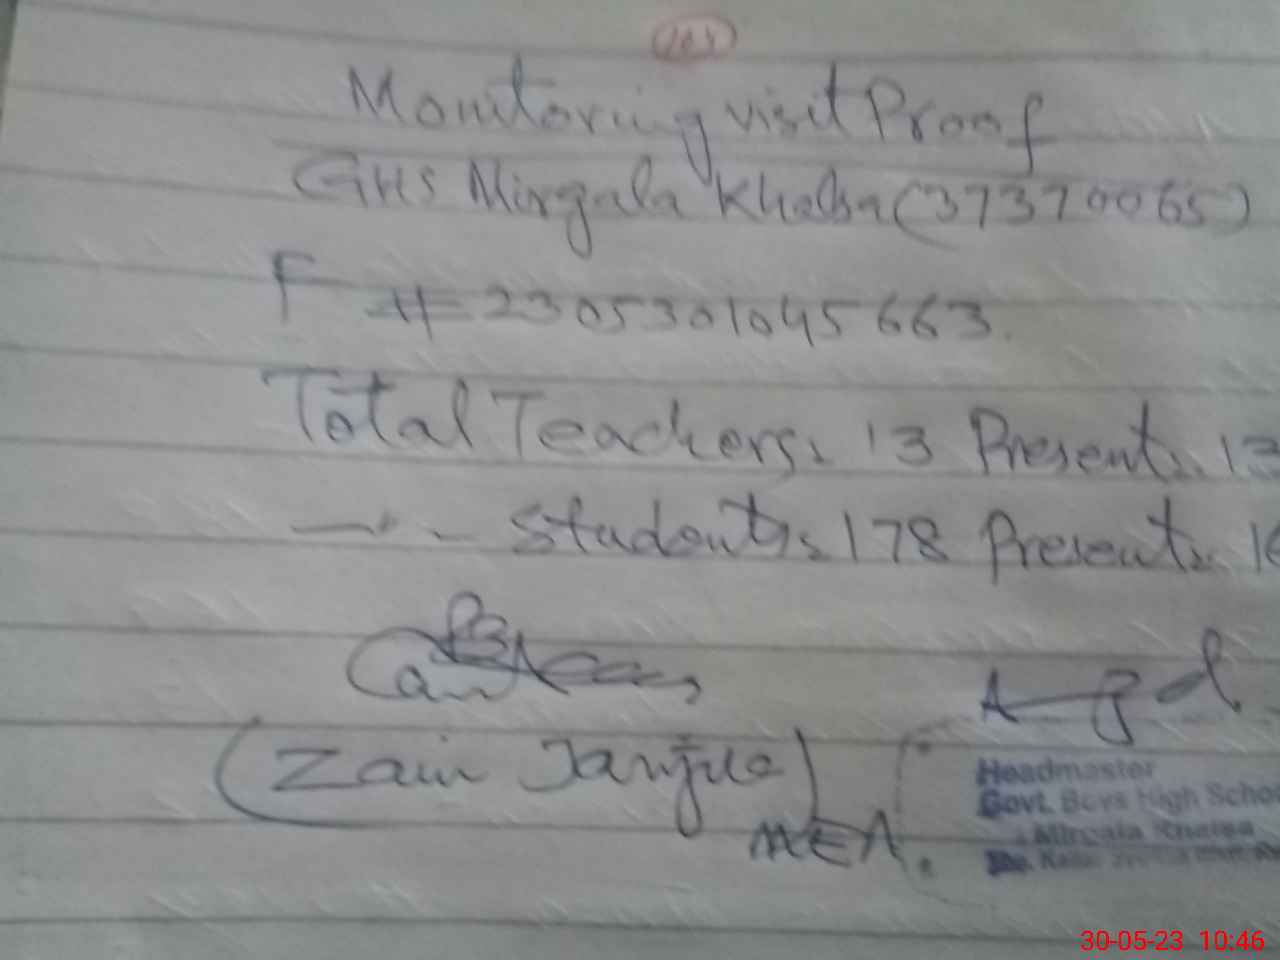 Monitoring visit Proof
GHS Mirgala Khalsa (37370065)
F # 2305301045663.
Total Teachers: 13 Present: 13
—"— Students: 178 Present:
(Zain Janjua)
MEA.
Headmaster
Govt. Boys High Schoo
Mirgala Khalsa
30-05-23 10:46